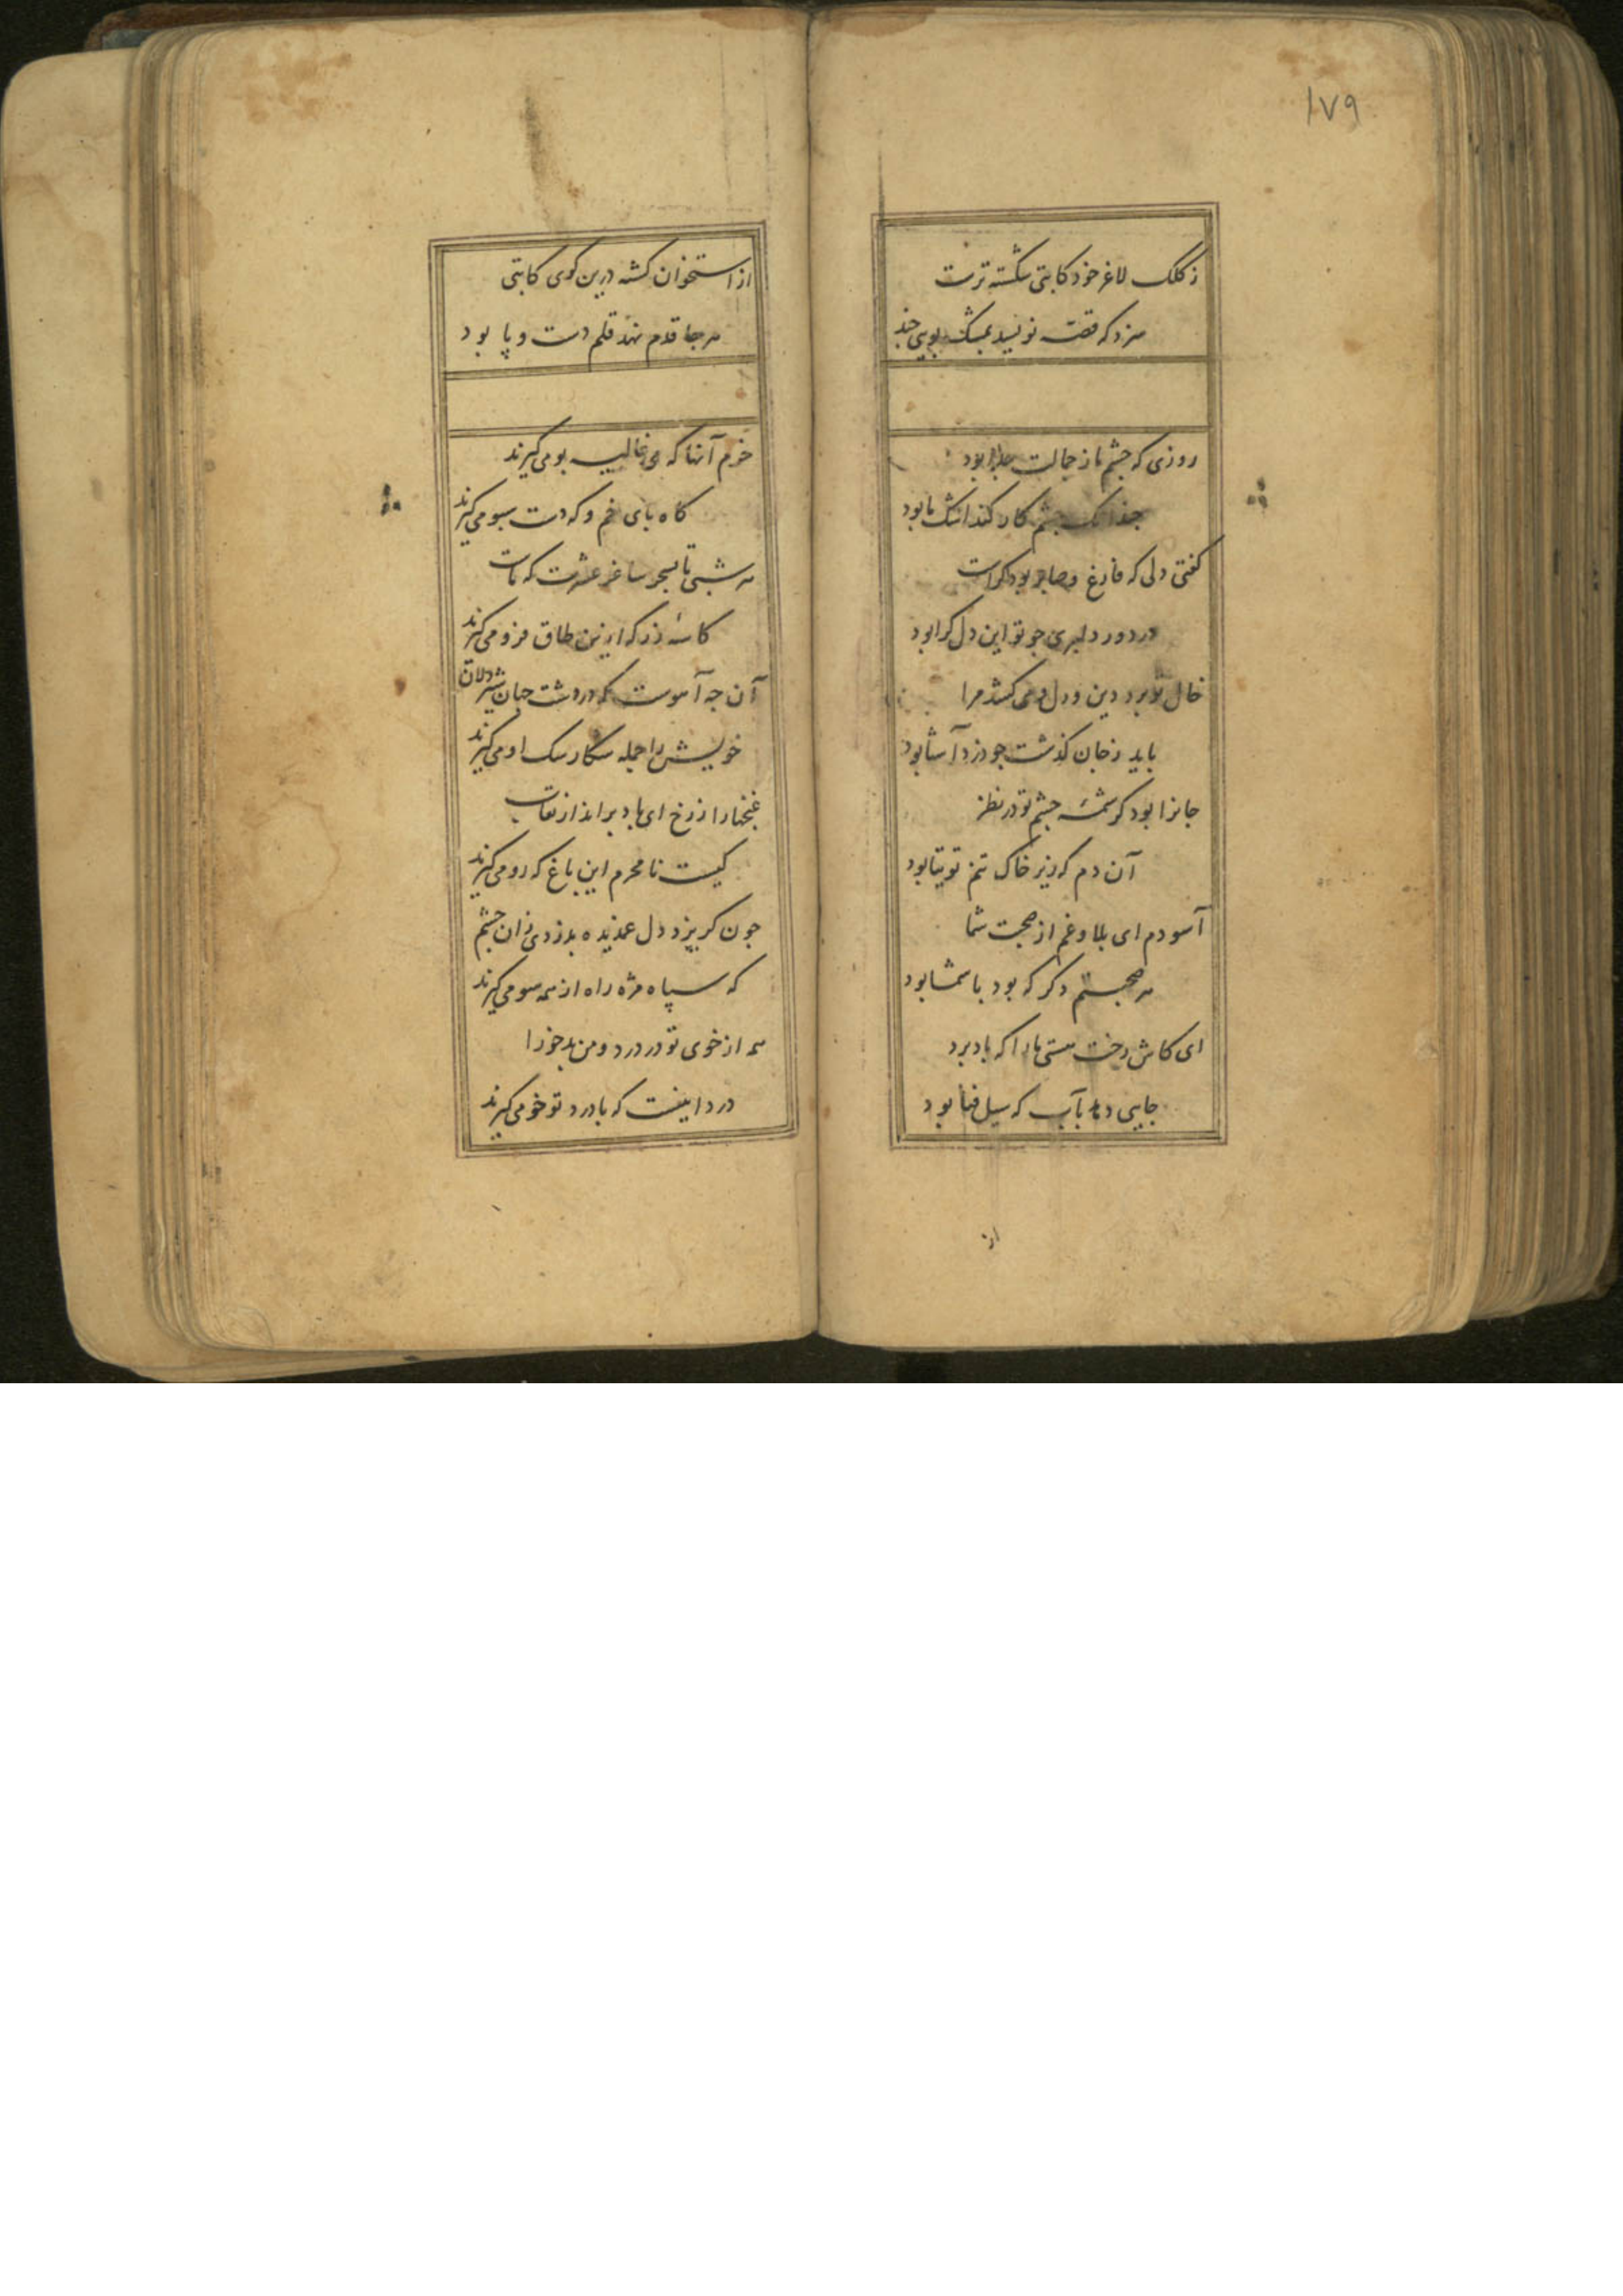 ۱۷۹
ز کلک لاغر خود کاتبی شکسته ترست
سزد که قصه نویسد بمشک بویی چند
روزی که چشم ما ز جمالت جدا بود
چندانک چشم کار کند اشک ما بود
کفتی دلی که فارغ و صابر بود کراست
در دور دلبری چو تو این دل کرا بود
خال تو برد دین و دل و می کشد مرا
باید ز جان کذشت چو دزد آشنا بود
جانرا بود کرشمه چشم تو در نظر
آن دم که زیر خاک تنم توتیا بود
آسودم ای بلا و غم از صحبت شما
هر صحبتم دکر که بود با شما بود
ای کاش رخت هستی ما را که باد برد
جایی دهد بآب که سیل فنا بود
از
از استخوان کشته درین کوی کاتبی
هر جا قدم نهند قلم دست و پا بود
خرم آنها که می غالیه بو می کیرند
کاه پای خم و که دست سبو می کیرند
هر شبی تا بسحر ساغر عشرت که تراست
کاسه زر که ازین طاق فرو می کیرند
آن چه آهوست که در دشت جهان شیردلان
خویش را جمله سکار سک او می کیرند
غنچها را ز رخ ای باد برانداز نقاب
کیست نامحرم این باغ که رو می کیرند
چون کریزد دل غمدیده بدزدی زان چشم
که سپاه مژه راه از همه سو می کیرند
همه از خوی تو در درد و من بدخو را
درد اینست که با درد تو خو می کیرند